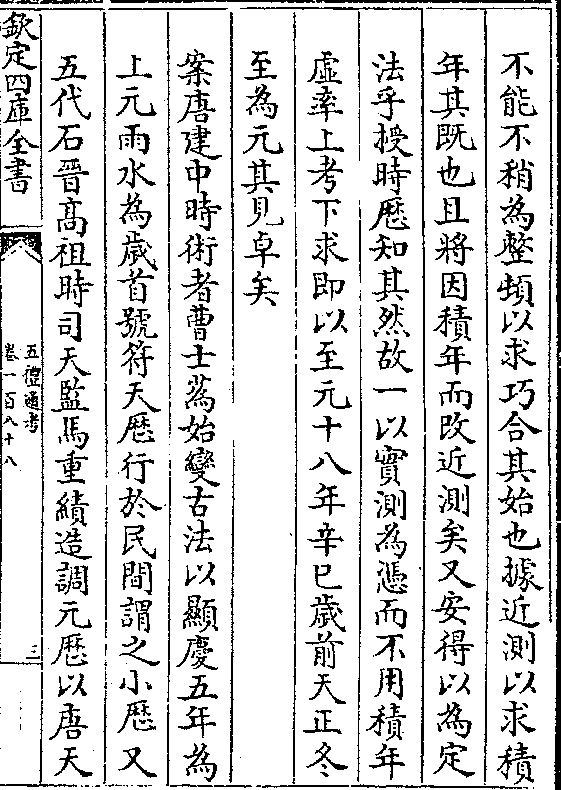 不能不稍為整頓以求巧合其始也據近測以求積
年其既也且將因積年而改近測矣又安得以為定
法乎授時歴知其然故一以實測為憑而不用積年
虛率上考下求即以至元十八年辛巳歲前天正冬
至為元其見卓矣
案唐建中時術者曹士蒍始變古法以顯慶五年為
上元雨水為歲首號符天歴行於民間謂之小歴又
五代石晉高祖時司天監馬重績造調元歴以唐天
欽定四庫全書
五禮通考
卷一百八十八
三